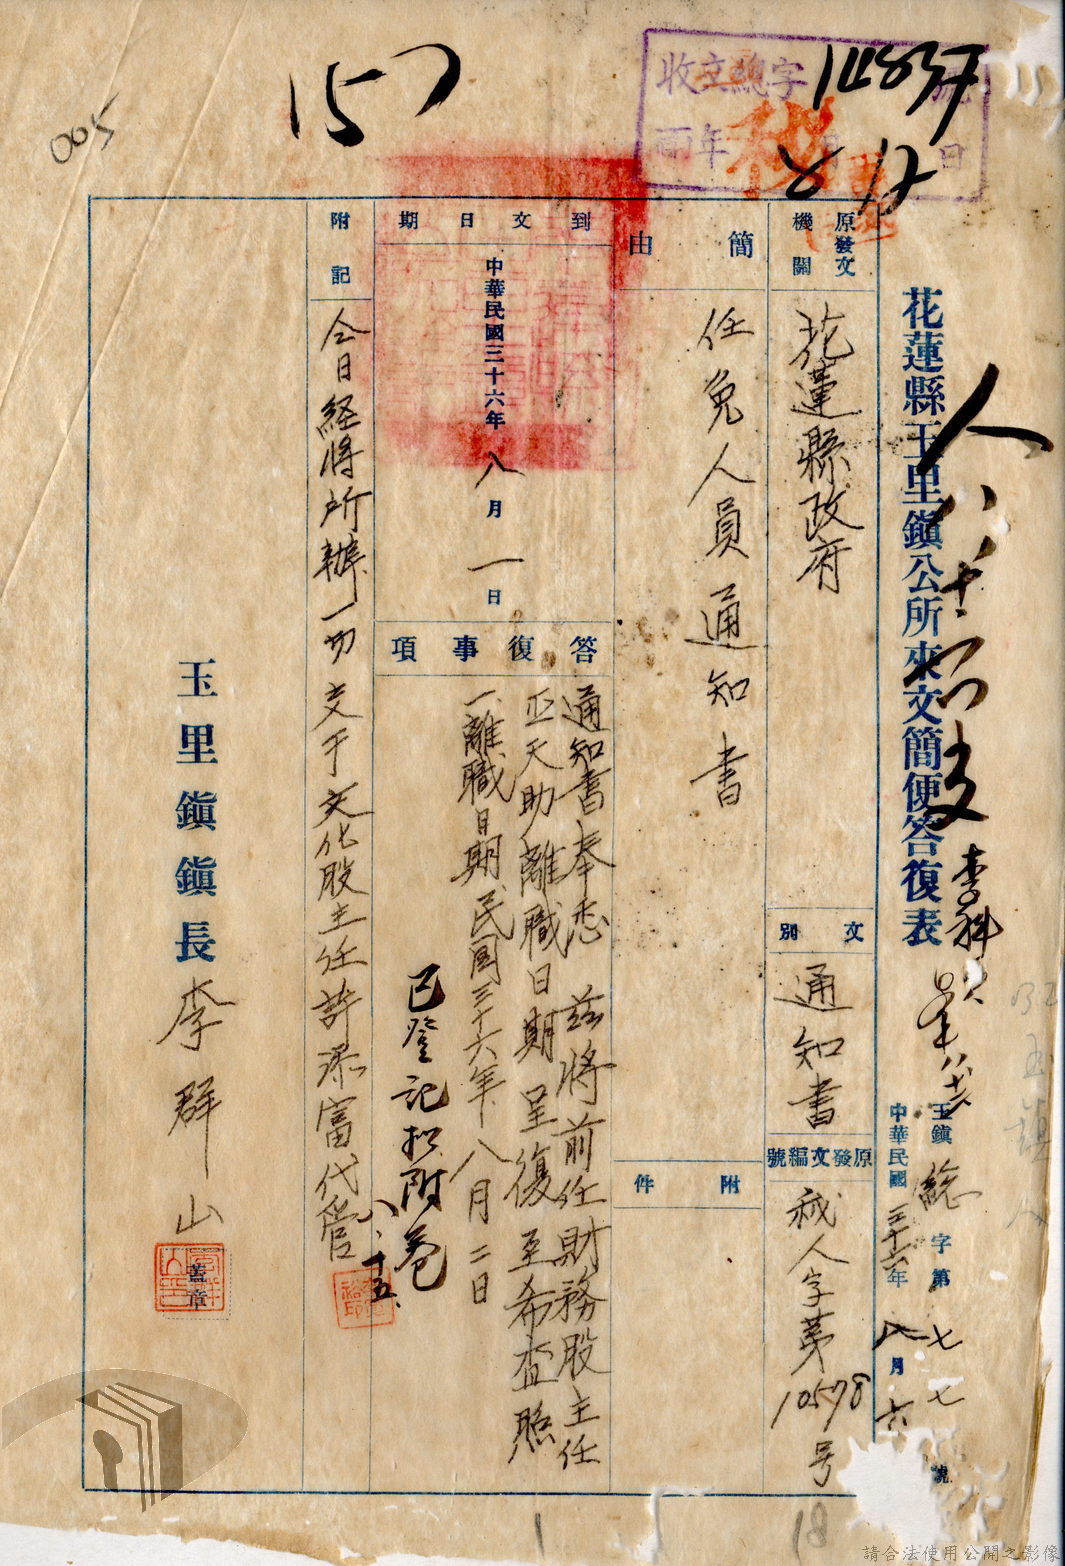 花蓮縣玉里鎮公所來文簡便答復表
玉鎮 總 字第 七七 號
中華民國 三十六 年 八 月 六
原發文機關
花蓮縣政府
文別
通知書
原發文編號
人字第10578号
簡由
任免人員通知書
附件
到文日期
中華民國三十六年 八 月 一 日
答復事項
通知書奉悉 茲將前任財務股主任
天助離職日期呈復至希查照
一、離職日期民國三十六年八月二日
已登記 附卷
八、十五、
附記
今日経將所辦一切 交于文化股主任許添富代管
玉里鎮鎮長 李群山
蓋章
收文總字 14837 號
年 月 日
157
005
18
請合法使用公開之影像